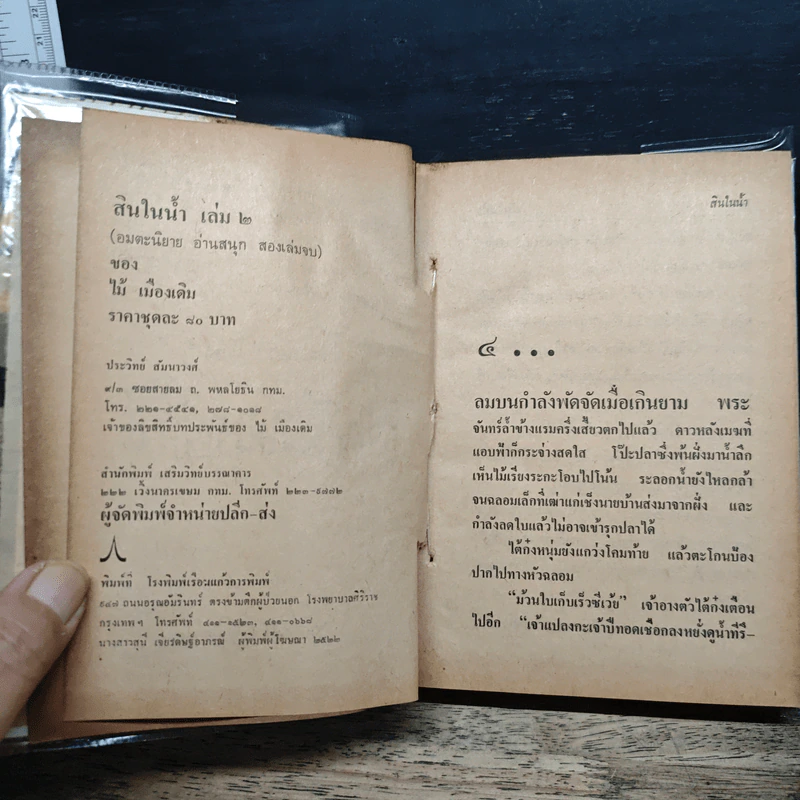 สินในน้ำ เล่ม ๒
(อมตะนิยาย อ่านสนุก สองเล่มจบ)
ของ
ไม้ เมืองเดิม
ราคาชุดละ ๘๐ บาท
ประวิทย์ สัมนาวงศ์
๙/๓ ซอยสายลม ถ. พหลโยธิน กทม.
โทร. ๒๒๑-๔๕๔๑, ๒๗๘-๑๐๑๘
เจ้าของลิขสิทธิ์บทประพันธ์ของ ไม้ เมืองเดิม
สำนักพิมพ์ เสริมวิทย์บรรณาคาร
๒๒๒ เวิ้งนาครเขษม กทม. โทรศัพท์ ๒๒๓-๙๗๗๒
ผู้จัดพิมพ์จำหน่ายปลีก-ส่ง
พิมพ์ที่ โรงพิมพ์เรือนแก้วการพิมพ์
๙๔๗ ถนนอรุณอัมรินทร์ ตรงข้ามตึกผู้ป่วยนอก โรงพยาบาลศิริราช
กรุงเทพฯ โทรศัพท์ ๔๑๑-๑๕๒๓, ๔๑๑-๐๖๖๘
นางสาวสุนี เจียรดิษฐ์อาภรณ์ ผู้พิมพ์ผู้โฆษณา ๒๕๒๒
สินในน้ำ
๔ ...
ลมบนกำลังพัดจัดเมื่อเกินยาม พระ
จันทร์ล้ำข้างแรมครึ่งเสี้ยวตกไปแล้ว ดาวหลังเมฆที่
แอบฟ้าก็กระจ่างสดใส โป๊ะปลาซึ่งพ้นฝั่งมาน้ำลึก
เห็นไม้เรียงระกะโอบไปโน้น ระลอกน้ำยังไหลกล้า
จนฉลอมเล็กที่เฒ่าแก่เช็งนายบ้านส่งมาจากฝั่ง และ
กำลังลดใบแล้วไม่อาจเข้ารุกปลาได้
ไต้ก๋งหนุ่มยังแกว่งโคมท้าย แล้วตะโกนป้อง
ปากไปทางหัวฉลอม
“ม้วนใบเก็บเร็วซีเว้ย” เจ้าอางตัวไต้ก๋งเตือน
ไปอีก “เจ้าแปลงกะเจ้าปีทอดเชือกลงหยั่งดูน้ำทีรึ–